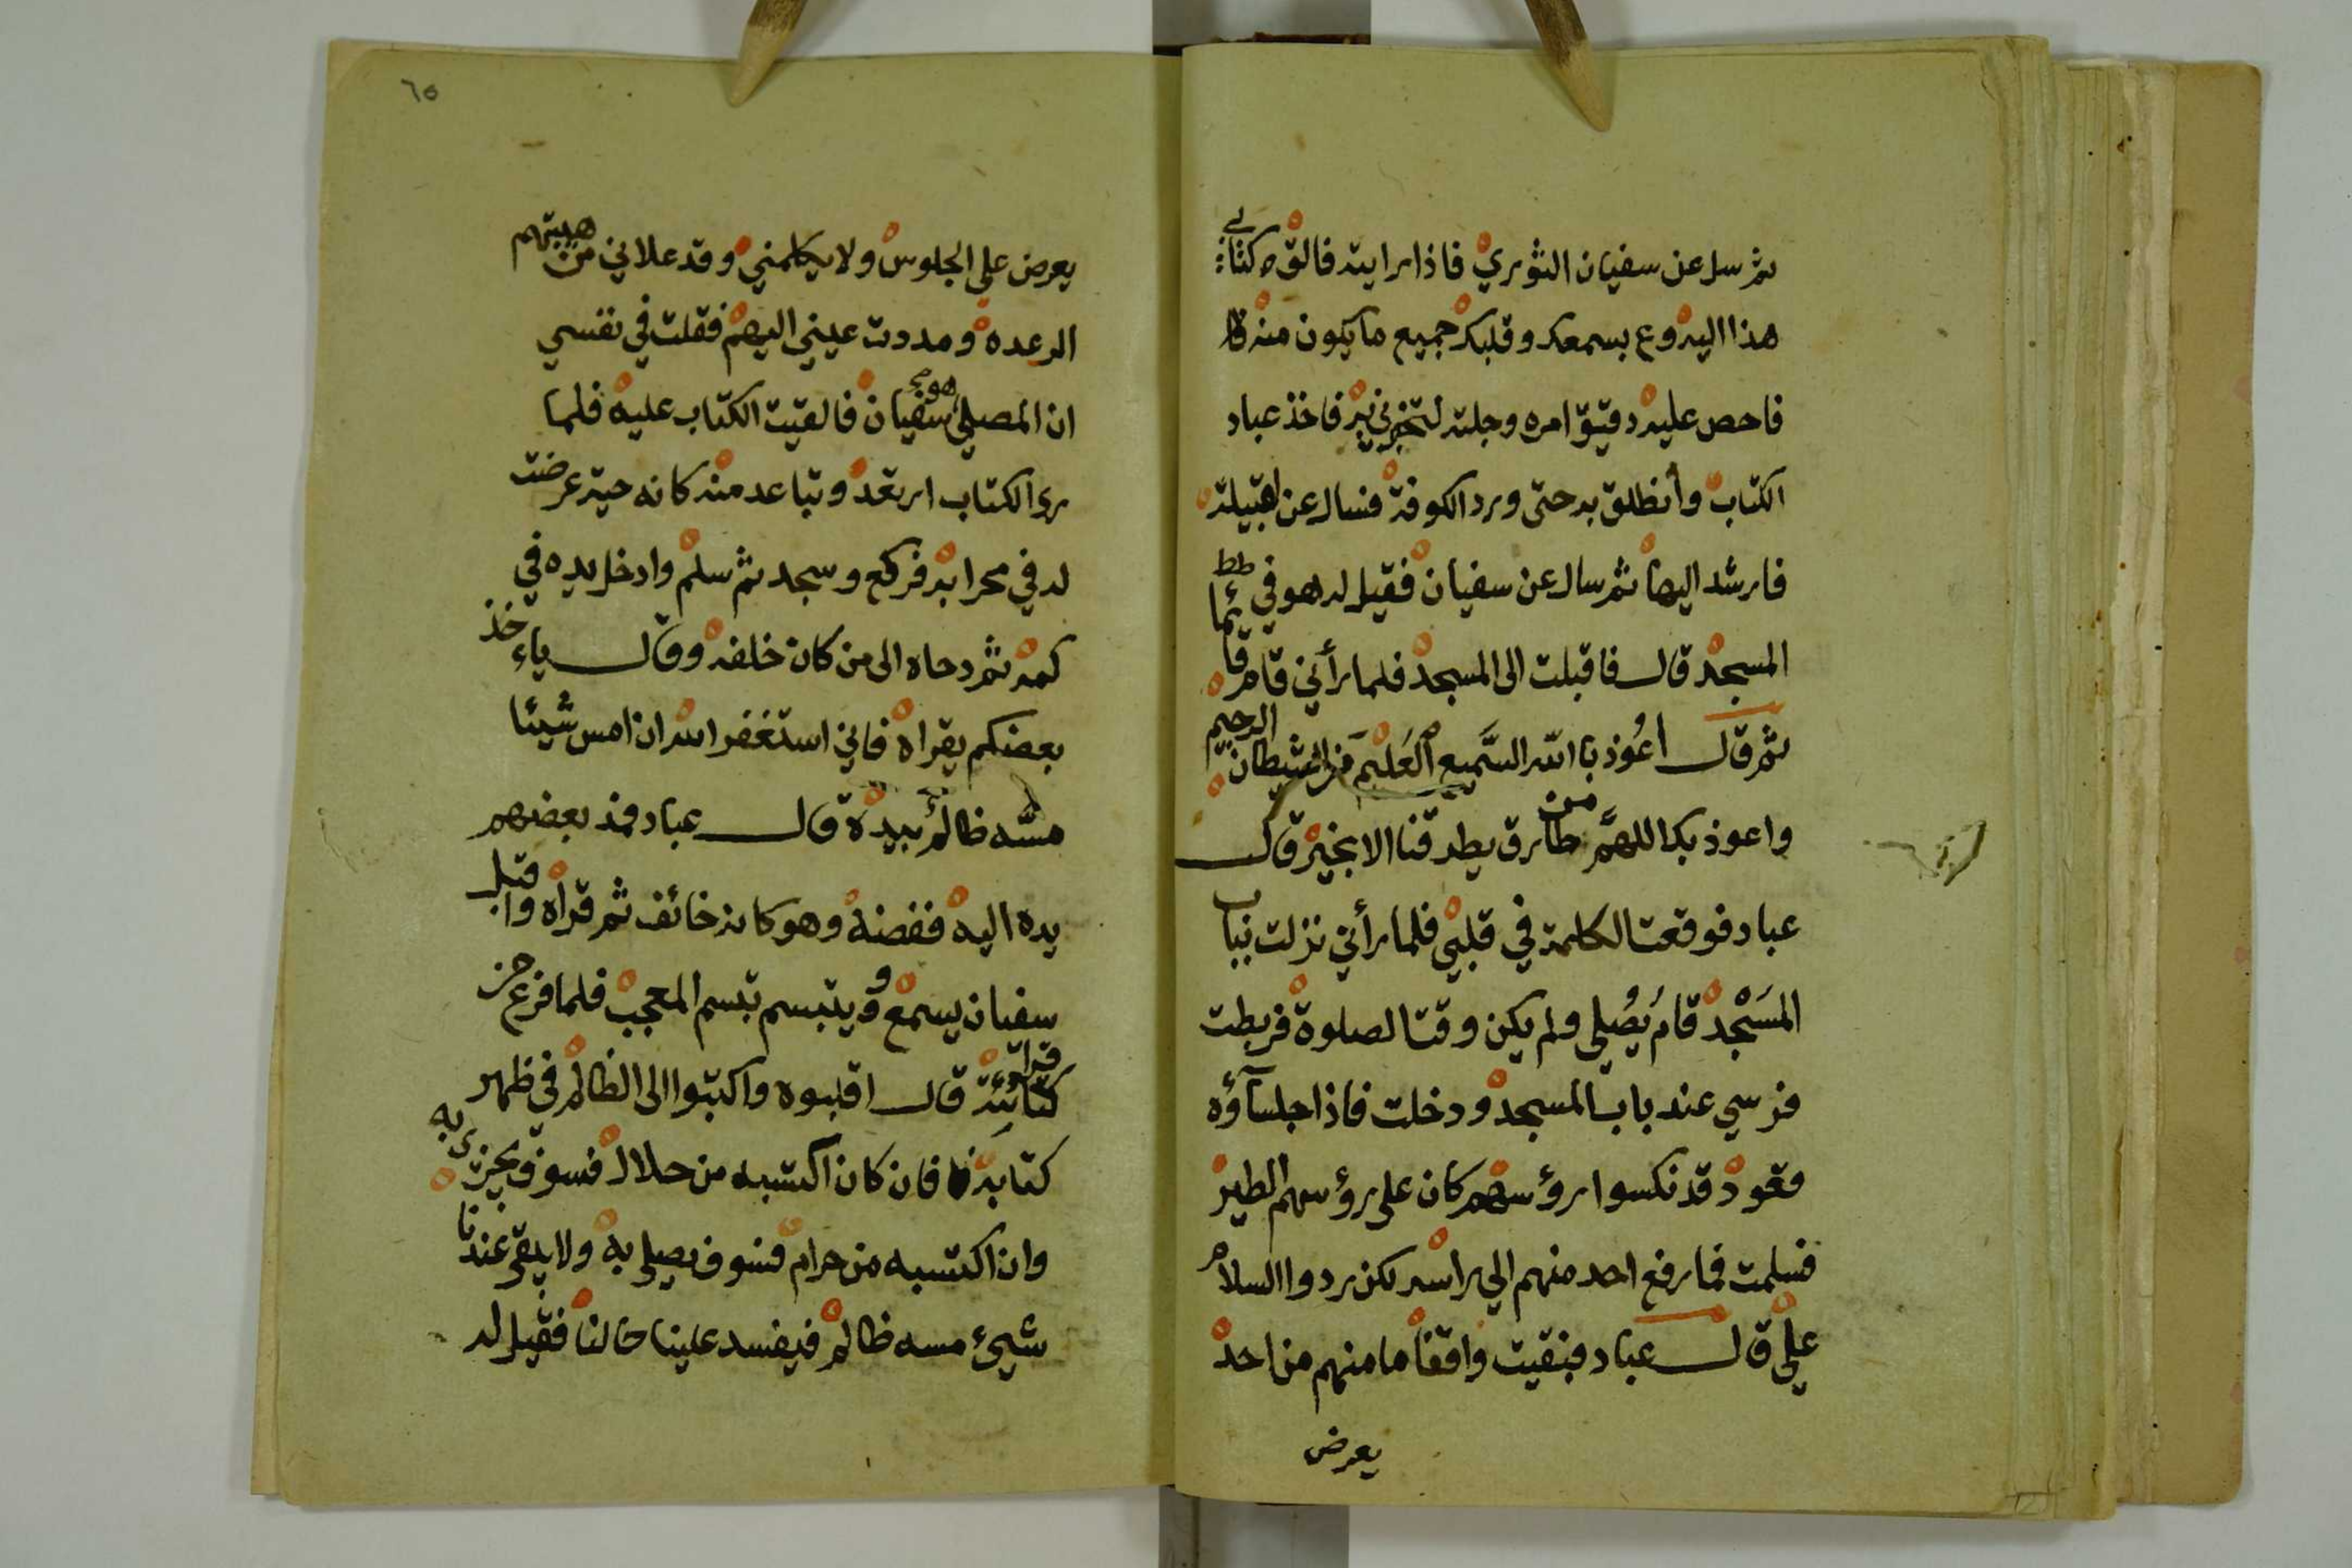 ثم سل عن سفيان الثوري فاذا رايته فالق كتابي
هذا اليه وع بسمعك وقلبك جميع ما يكون منه
فاحص عليه دقيق امره وجله لتخبرني به فاخذ عباد
الكتاب وأنطلق به حتى ورد الكوفة فسال عن القبيلة
فارشد اليها ثم سال عن سفيان فقيل له هو في
المسجد قال فاقبلت الى المسجد فلما رأني قام قائما
ثم قال أعُوذ باالله السَّميع العَليم من الشيطان الرجيم
واعوذ بك اللهمَّ من طارق يطرقنا الا بخير قال
عباد فوقعت الكلمة في قلبي فلما رأني نزلت بباب
المَسْجد قام يُصُلي ولم يكن وقت الصلوة فربطت
فرسي عند باب المسجد ودخلت فاذا جلسآؤه
قعود قد نكسوا رؤسهم كان على رؤسهم الطير
فسلمت فما رفع احد منهم الي راسه لكن ردوا السلام
علي قال عباد فبقيت واقفاً ما منهم من احد
يعرض
٦٥
يعرض علي الجلوس ولا يكلمني وقد علاني من هيبتهم
الرعده ومددت عيني اليهم فقلت في نفسي
ان المصلي هو سفيان فالقيت الكتاب عليه فلما
رؤا الكتاب ارتعد وتباعد منه كانه حية عرضت
له في محرابه فركع وسجد ثم سلم وادخل يده في
كمه ثم دحاه الى من كان خلفه وقال ياءخذ
بعضكم يقراه فاني استغفر الله ان امس شيئا
مسَّه ظالم بيده قال عباد فمد بعضهم
يده اليه ففضه وهو كانه خائف ثم قرأه واقبل
سفيان يسمع ويتبسم تبسم المعجب فلما فرغ من
قرائة كتابته قال اقلبوه واكتبوا الى الظالم في ظهر
كتابه فان كان اكتسبه من حلال فسوف يجزى به
وان اكتسبه من حرام فسوف يصلى به ولا يبقى عندنا
شيئ مسه ظالم فيفسد علينا حالنا فقيل له